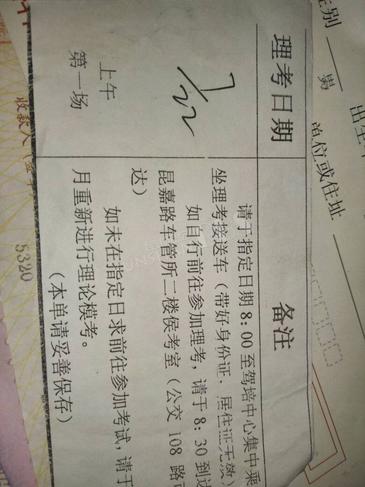 理考日期
7/22
上午
第一场
备注
请于指定日期8:00至驾培中心集中乘
坐理考接送车（带好身份证、居住证无效）
如自行前往参加理考，请于8:30到达
昆嘉路车管所二楼侯考室（公交108路可
达）
如未在指定日求前往参加考试，请于
月重新进行理论模考。
（本单请妥善保存）
性别
男
单位或住址
收款人
5320